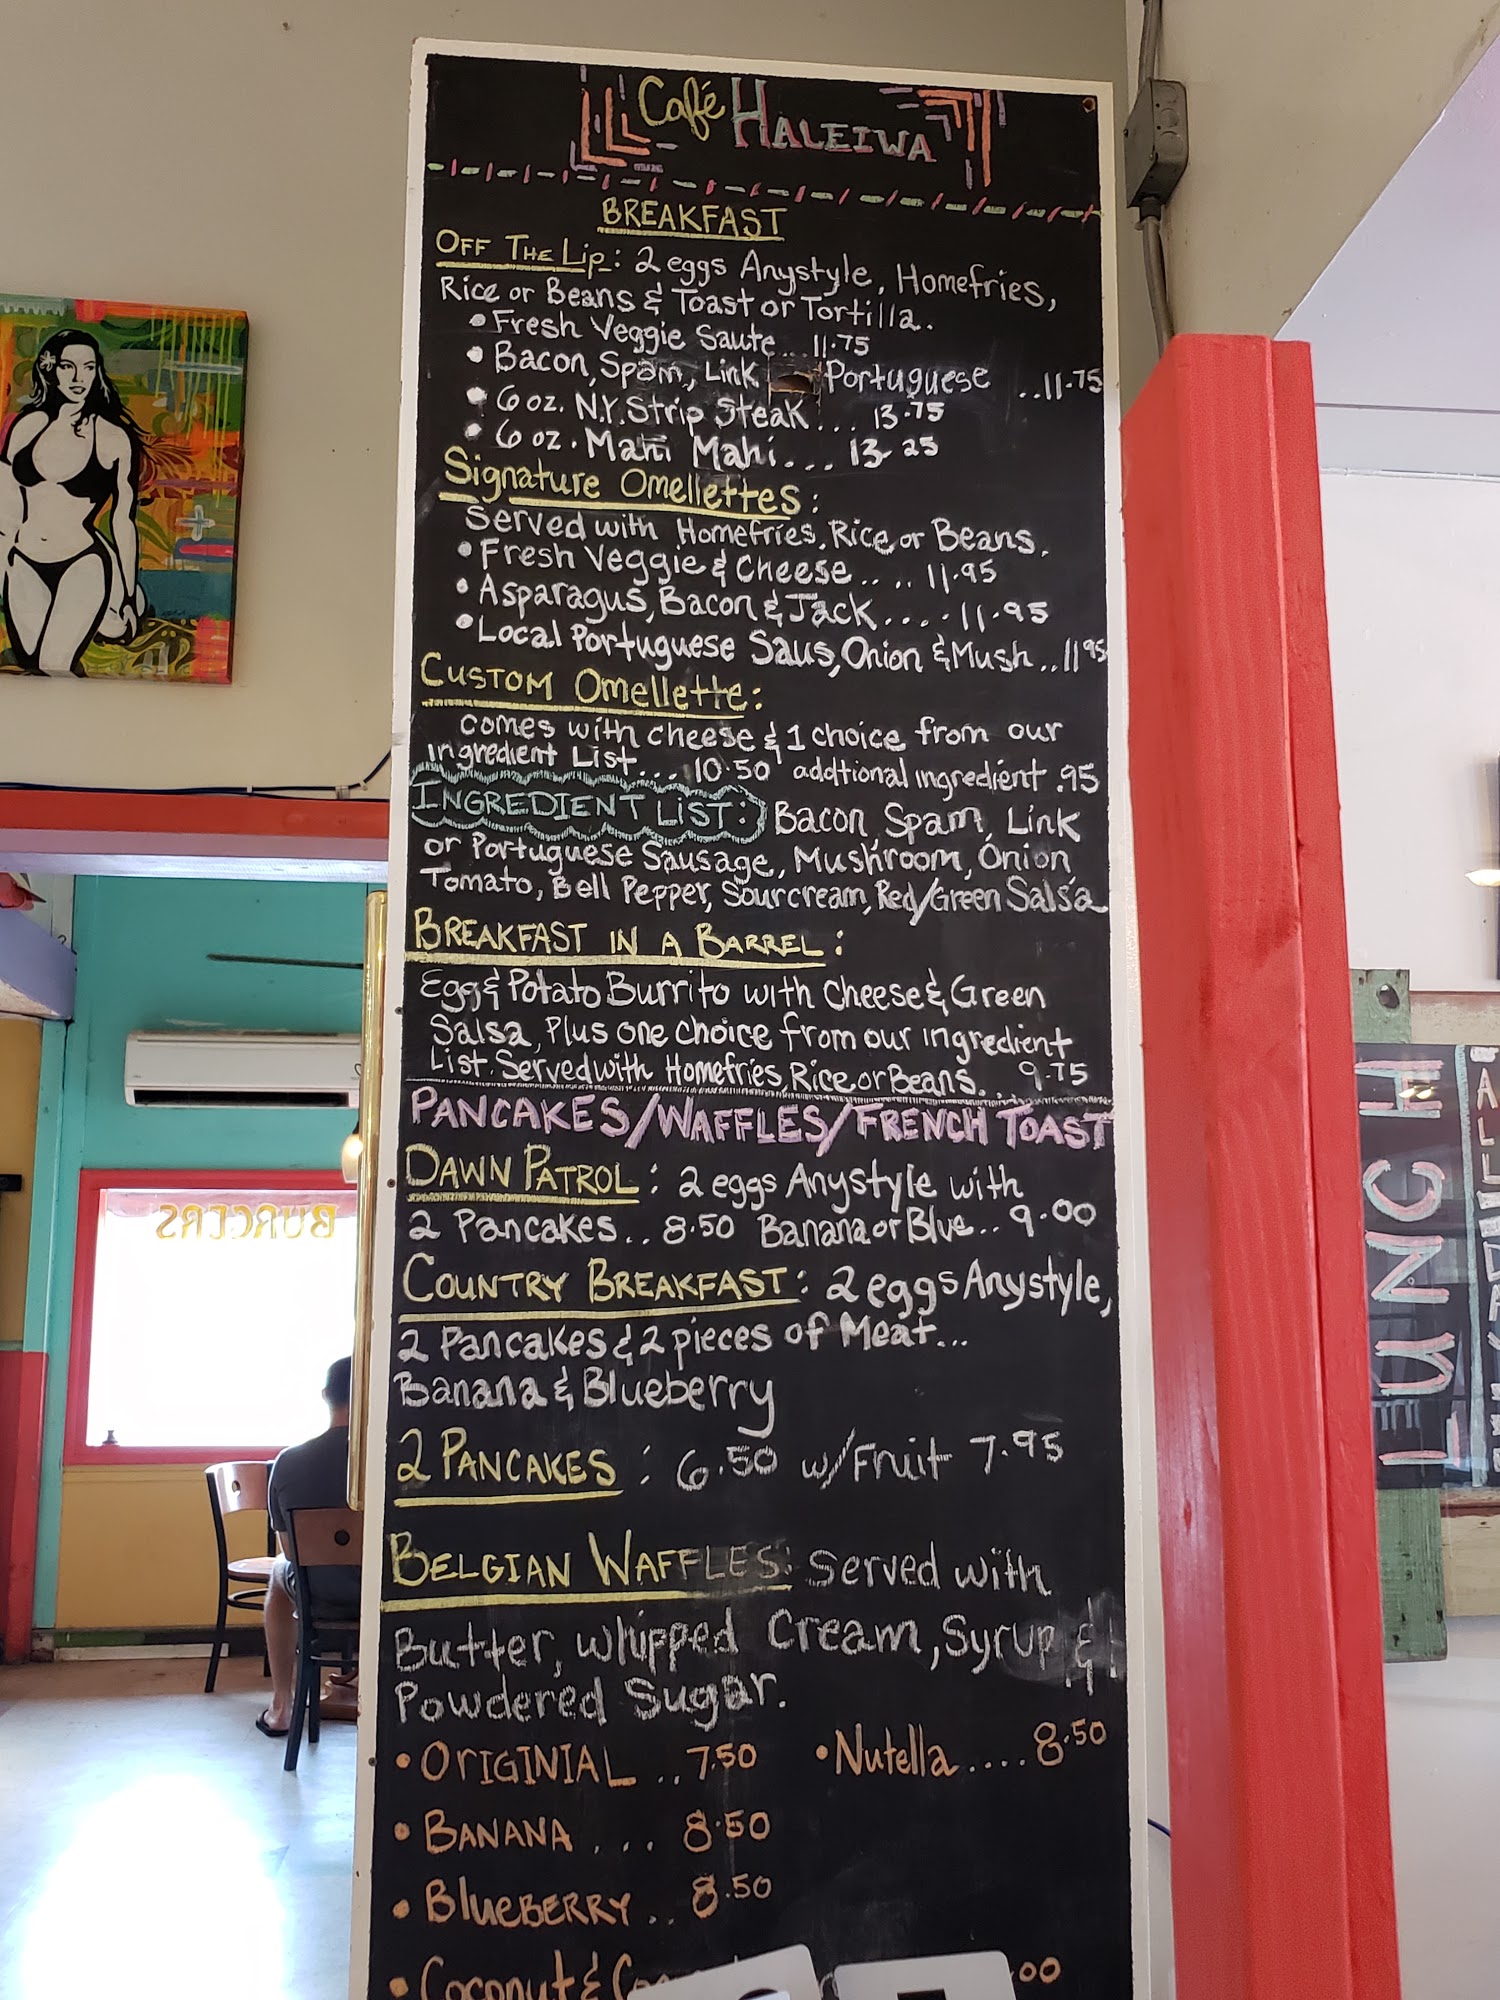 Café HALEIWA
BREAKFAST
OFF THE Lip: 2 eggs Anystyle, Homefries,
Rice or Beans & Toast or Tortilla.
• Fresh Veggie Saute.. 11.75
• Bacon, Spam, Link Portuguese ..11.75
• 6 oz. N.Y. Strip Steak... 13.75
• 6 oz. Mahi Mahi... 13.25
Signature Omellettes:
Served with Homefries, Rice or Beans.
• Fresh Veggie & Cheese.... 11.95
• Asparagus, Bacon & Jack.... 11.95
• Local Portuguese Saus, Onion & Mush..11.95
CUSTOM Omellette:
comes with cheese & 1 choice from our
ingredient List... 10.50 addtional ingredient .95
INGREDIENT LIST: Bacon, Spam, Link
or Portuguese Sausage, Mushroom, Onion,
Tomato, Bell Pepper, Sourcream, Red/Green Salsa
BREAKFAST IN A BARREL:
Egg & Potato Burrito with Cheese & Green
Salsa, Plus one choice from our ingredient
List. Served with Homefries, Rice or Beans.. 9.75
PANCAKES/WAFFLES/FRENCH TOAST
DAWN PATROL: 2 eggs Anystyle with
2 Pancakes.. 8.50 Banana or Blue.. 9.00
COUNTRY BREAKFAST: 2 eggs Anystyle,
2 Pancakes & 2 pieces of Meat...
Banana & Blueberry
2 PANCAKES: 6.50 w/Fruit 7.95
BELGIAN WAFFLES: Served with
Butter, whipped Cream, Syrup &
Powdered Sugar.
• ORIGINIAL .. 7.50 • Nutella.... 8.50
• BANANA ... 8.50
• BlueBERRY .. 8.50
• Coconut & .00
BURGERS
LUNCH
ALL DAY